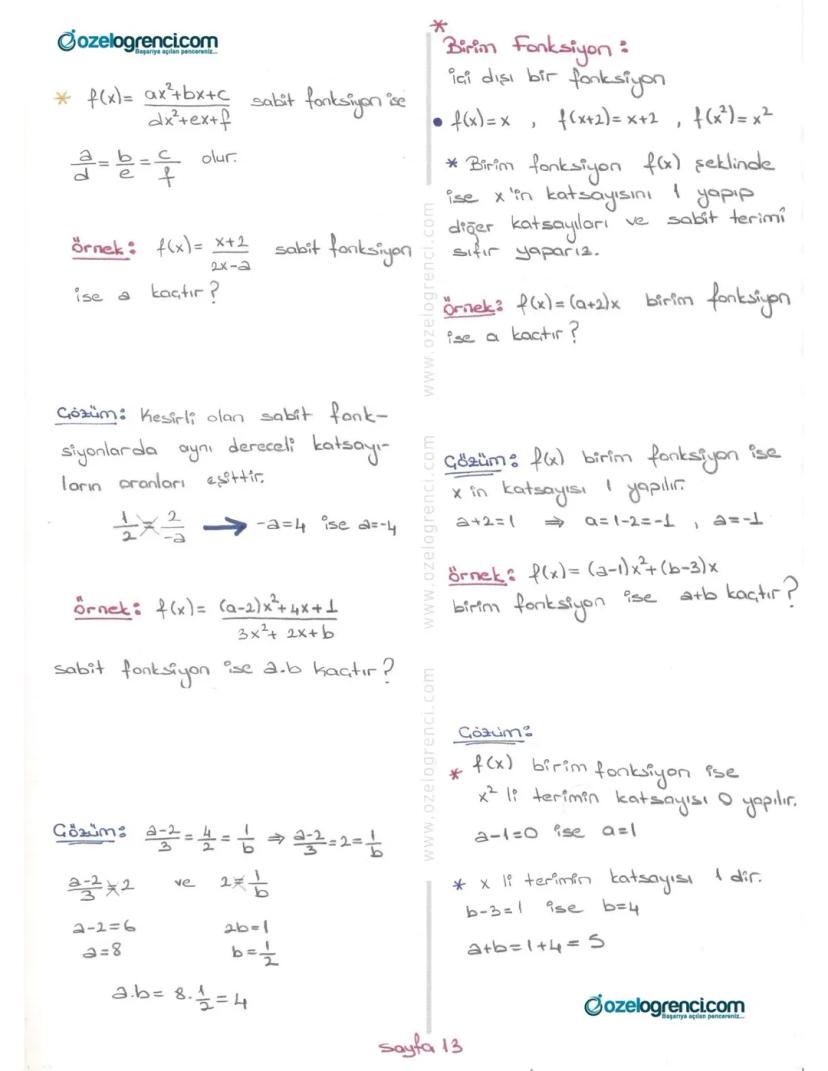 ozelogrenci.com
Başarıya açılan pencereniz...
* f(x)= ax²+bx+c / dx²+ex+f sabit fonksiyon ise
a/d = b/e = c/f olur.
Örnek: f(x)= x+2 / 2x-a sabit fonksiyon
ise a kaçtır?
Çözüm: Kesirli olan sabit fonk-
siyonlarda aynı dereceli katsayı-
ların oranları eşittir.
1/2 = 2/-a → -a=4 ise a=-4
Örnek: f(x)= (a-2)x²+4x+1 / 3x²+2x+b
sabit fonksiyon ise a.b kaçtır?
Çözüm: a-2/3 = 4/2 = 1/b ⇒ a-2/3 = 2 = 1/b
a-2/3 = 2 ve 2 = 1/b
a-2=6 2b=1
a=8 b=1/2
a.b= 8.1/2 = 4
www.ozelogrenci.com
www.ozelogrenci.com
www.ozelogrenci.com
*
Birim Fonksiyon:
içi dışı bir fonksiyon
• f(x)=x , f(x+2)=x+2 , f(x²)=x²
* Birim fonksiyon f(x) şeklinde
ise x'in katsayısını 1 yapıp
diğer katsayıları ve sabit terimi
sıfır yaparız.
Örnek: f(x)=(a+2)x birim fonksiyon
ise a kaçtır?
Çözüm: f(x) birim fonksiyon ise
x in katsayısı 1 yapılır.
a+2=1 ⇒ a=1-2=-1 , a=-1
Örnek: f(x)= (a-1)x²+(b-3)x
birim fonksiyon ise a+b kaçtır?
Çözüm:
* f(x) birim fonksiyon ise
x² li terimin katsayısı 0 yapılır.
a-1=0 ise a=1
* x li terimin katsayısı 1 dir.
b-3=1 ise b=4
a+b=1+4=5
ozelogrenci.com
Başarıya açılan pencereniz...
Sayfa 13